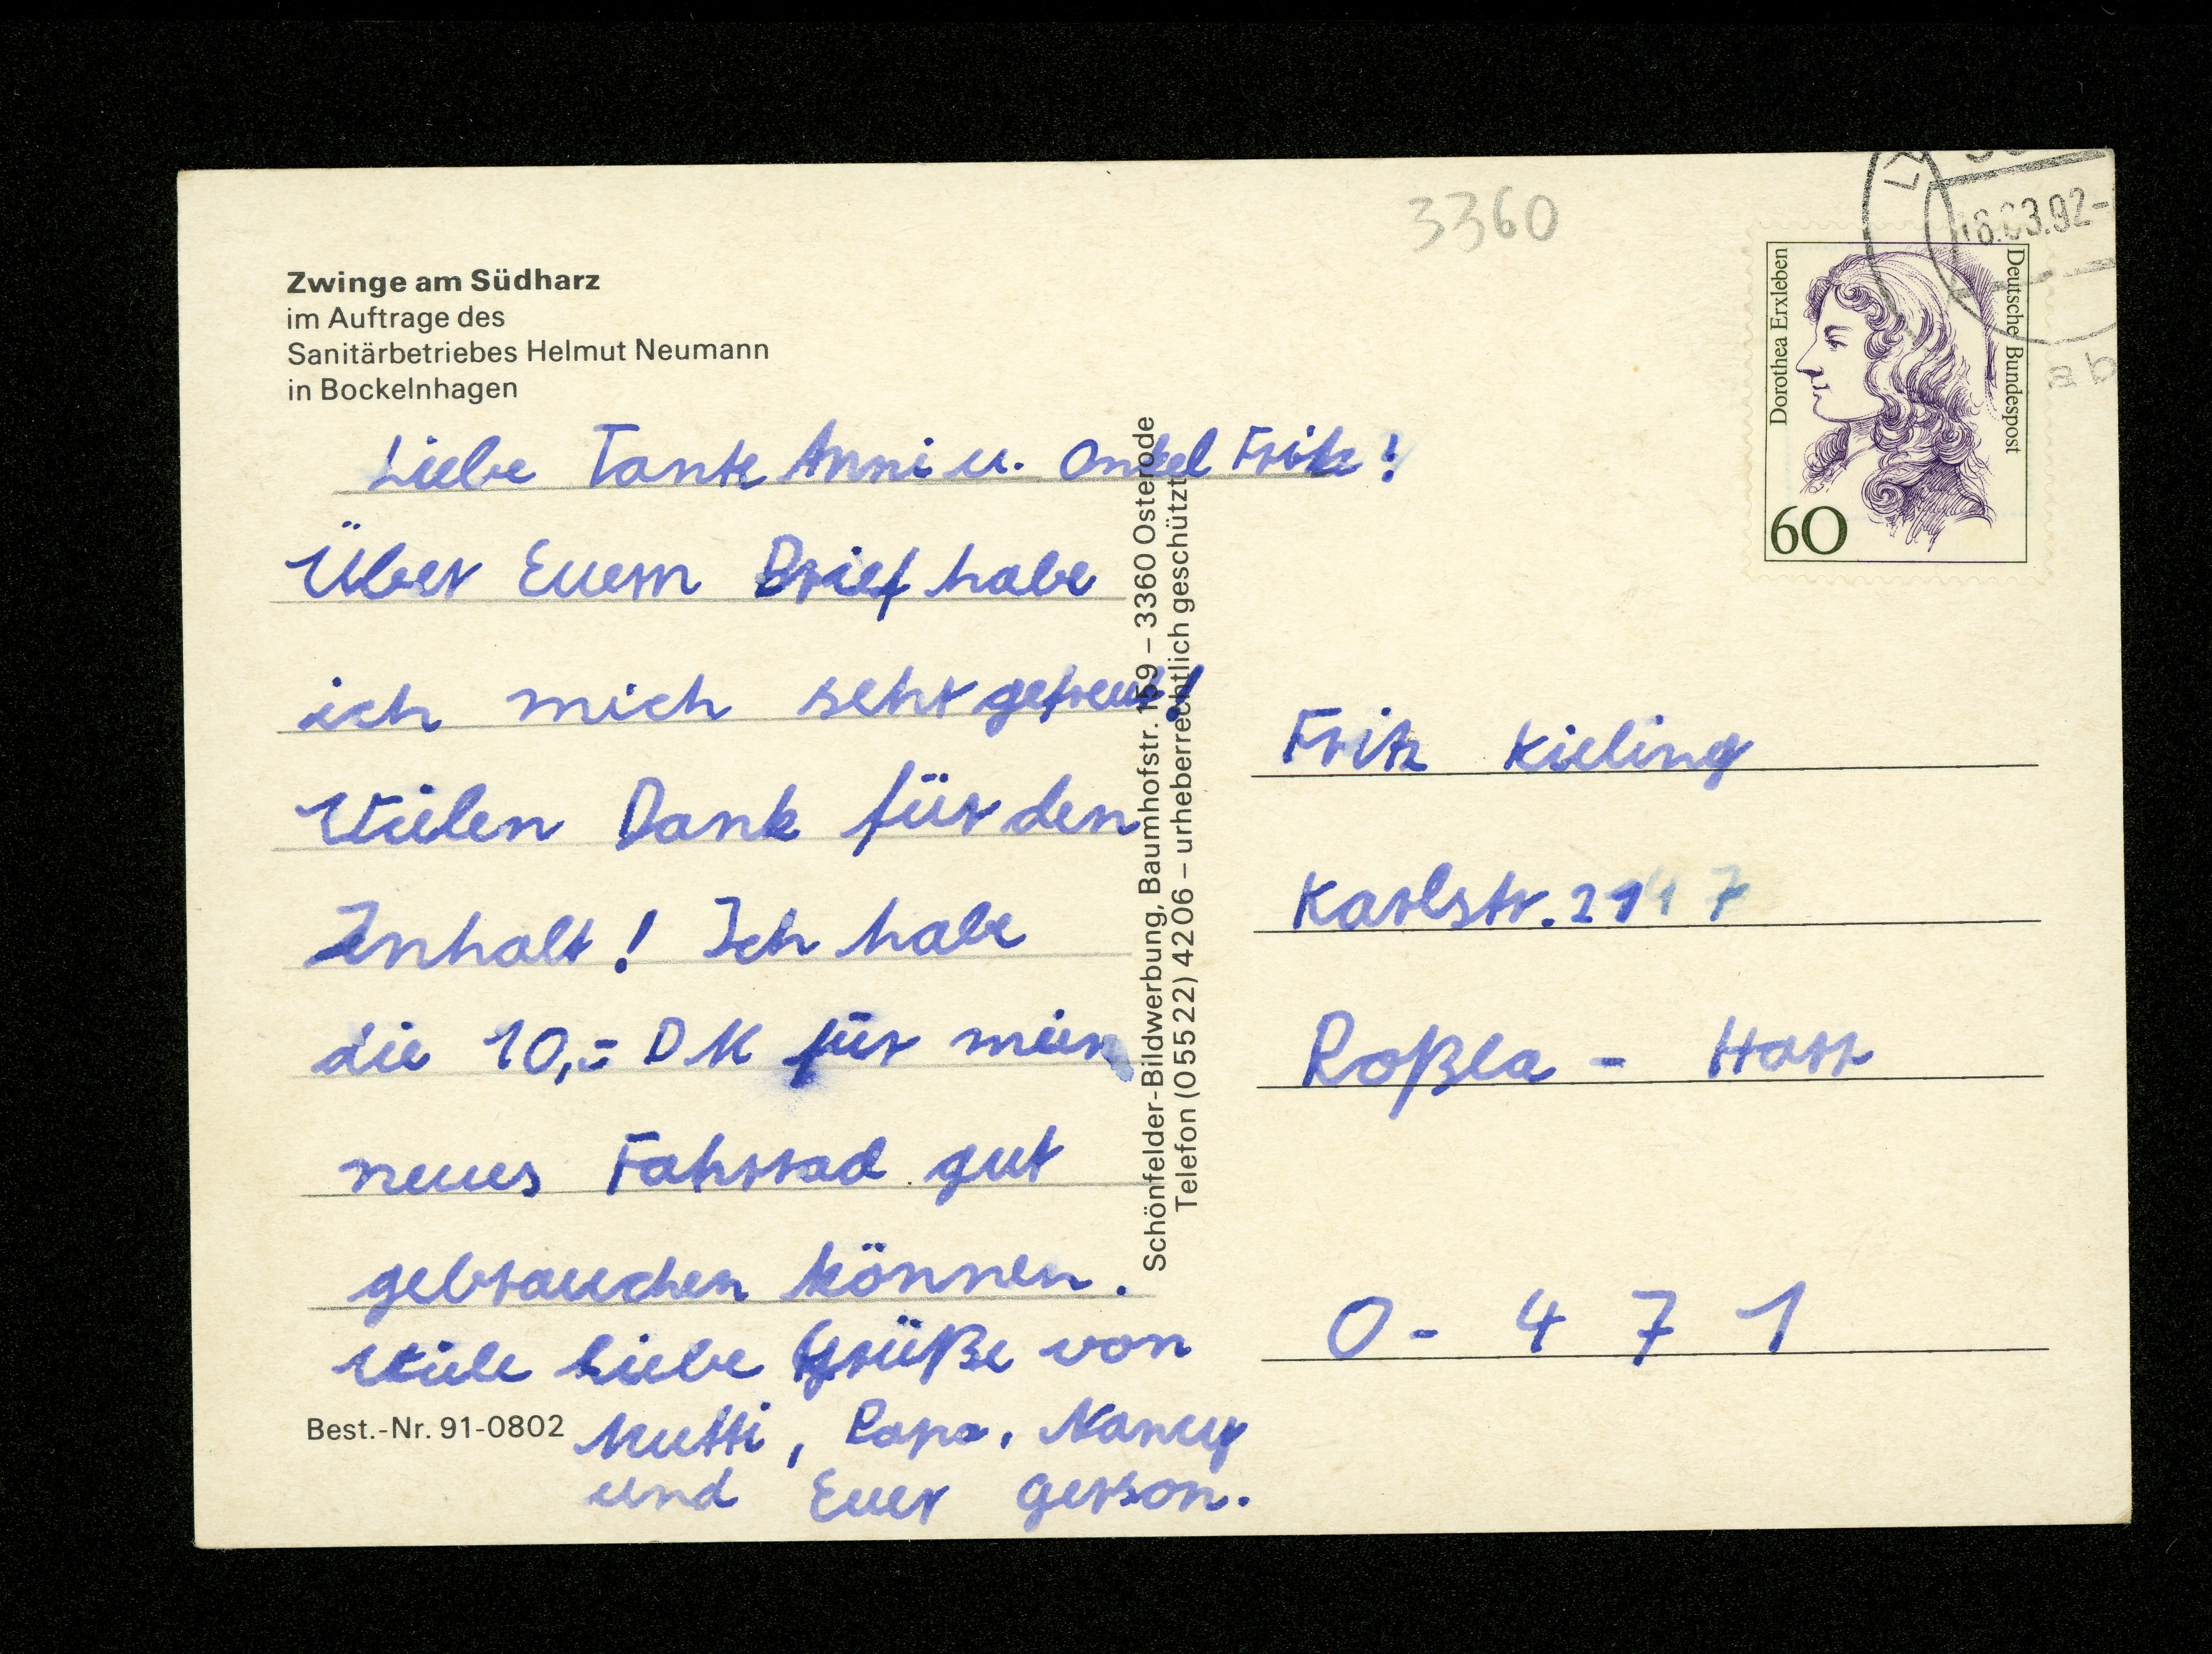 3360
Zwinge am Südharz
im Auftrage des
Sanitärbetriebes Helmut Neumann
in Bockelnhagen
Liebe Tante Anni u. Onkel Fritz!
Über Euern Brief habe
ich mich sehr gefreut!
Vielen Dank für den
Inhalt! Ich habe
die 10,= DM für mein
neues Fahrrad gut
gebrauchen können.
Viele liebe Grüße von
Mutti, Papa, Nancy
und Euer Gerson.
Best.-Nr. 91-0802
Schönfelder-Bildwerbung, Baumhofstr. 159 – 3360 Osterode
Telefon (05522) 4206 – urheberrechtlich geschützt
Dorothea Erxleben
Deutsche Bundespost
60
.03.92-
ab
Fritz Kieling
Karlstr.
Roßla - Harz
O- 4 7 1